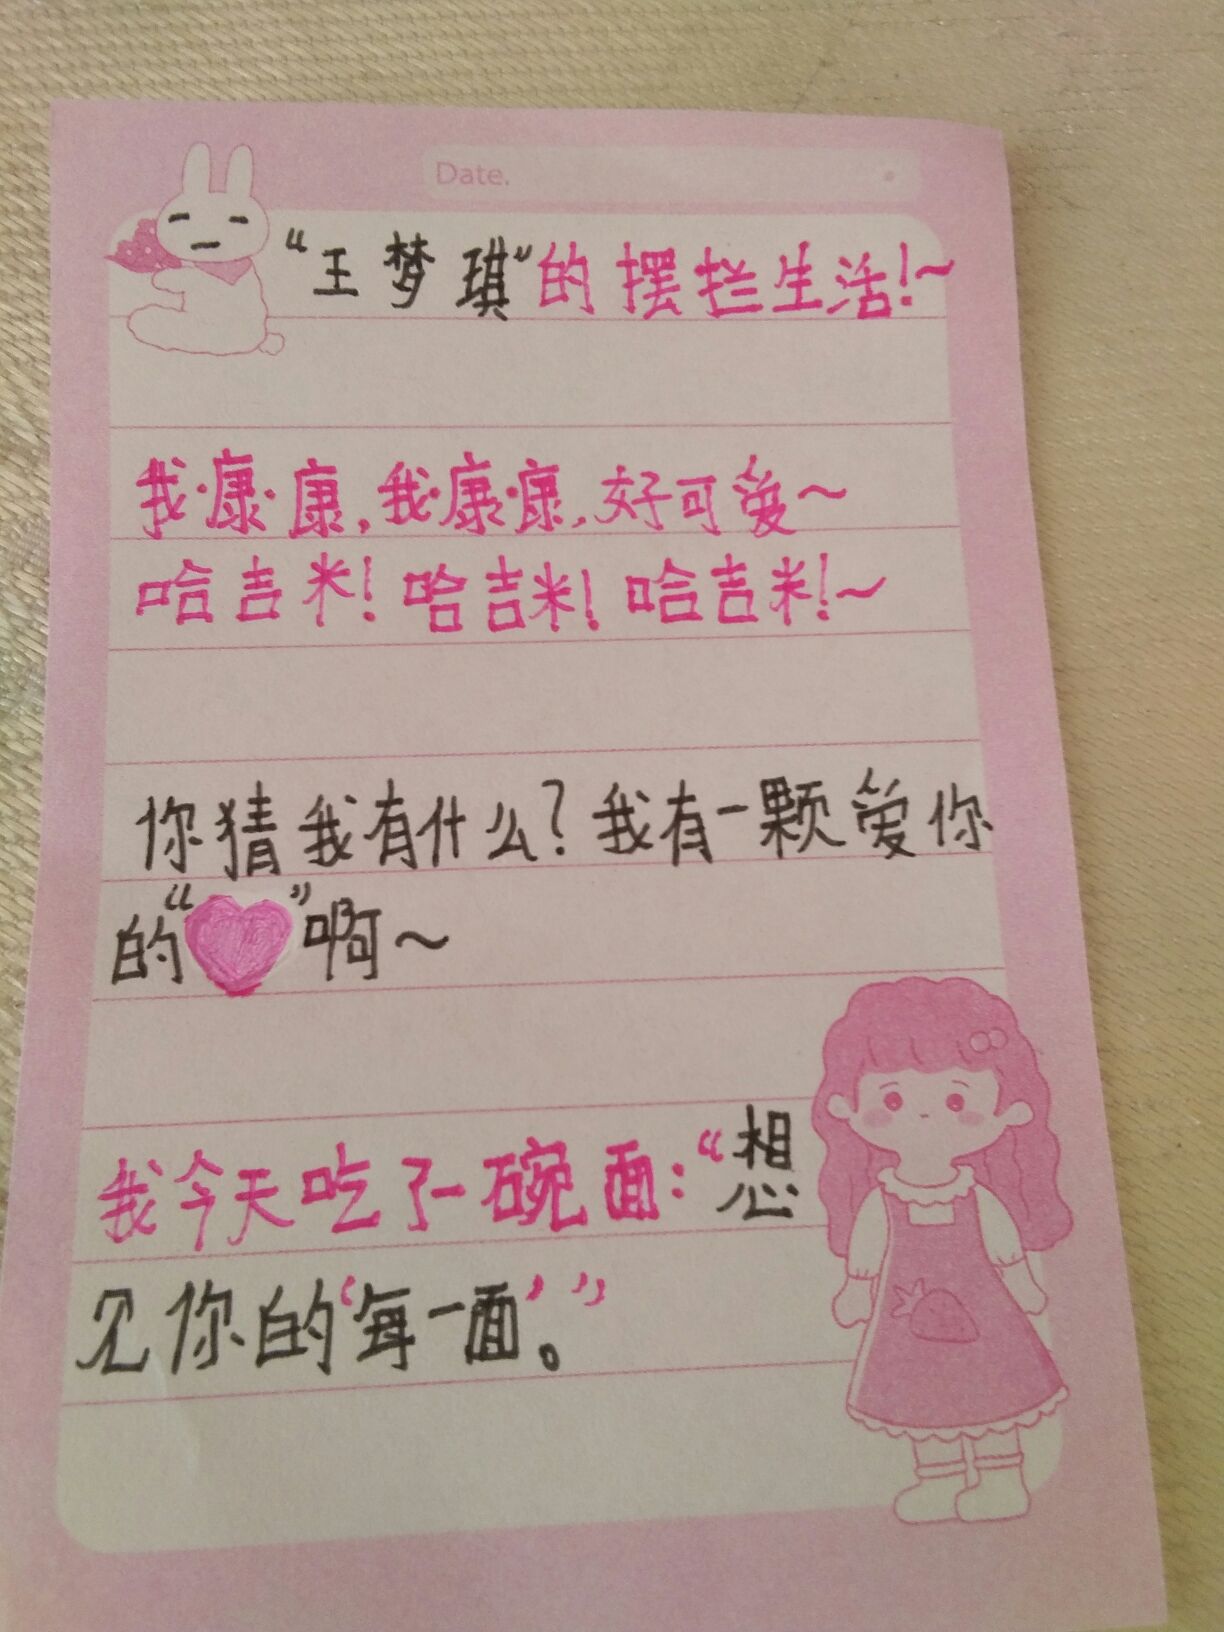 Date.
“王梦琪”的摆拦生活!~
我·康·康,我·康·康,好可爱~
哈吉米!哈吉米!哈吉米!~
你猜我有什么?我有一颗爱你
的“♥”啊~
我今天吃了一碗面:“想
见你的‘每一面’。”